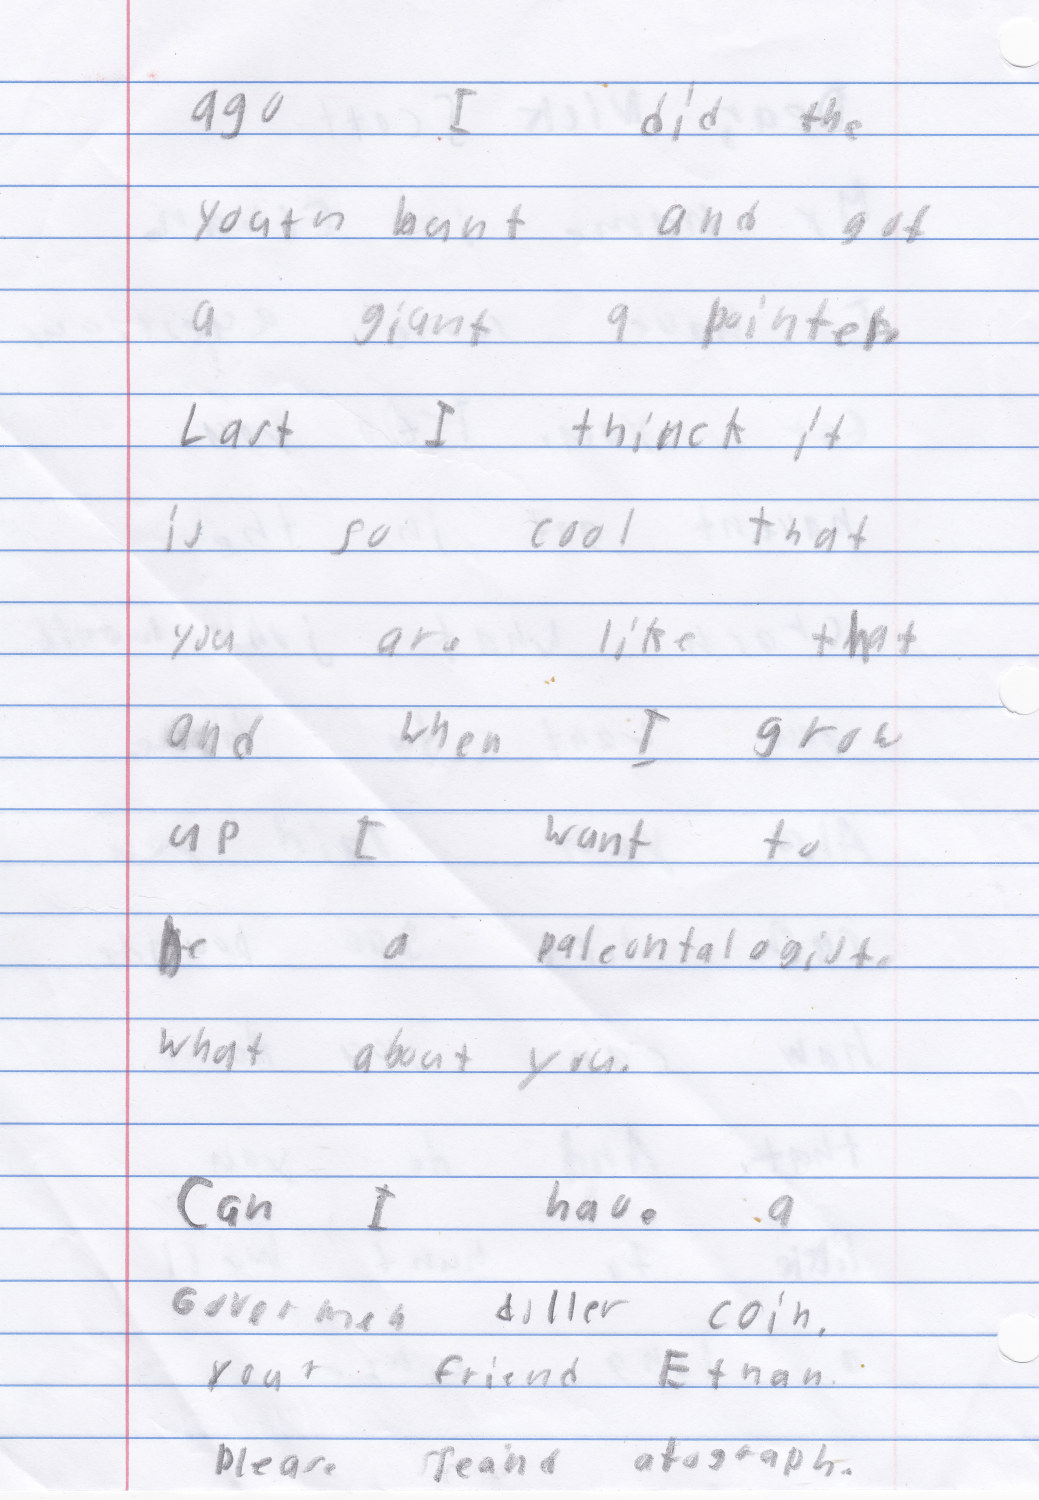 ago I did the
youth hunt and got
a giant 9 pointer
Last I thinck it
is so cool that
you are like that
and when I grow
up I want to
be a paleontalogist.
What about you.
Can I have a
Govermen doller coin.
your friend Ethan.
please seaind atograph.